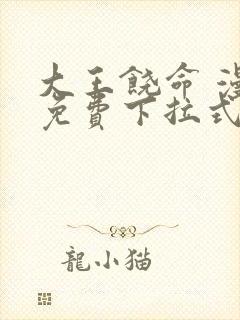 大王饶命 漫
免費下拉式
龍小猫